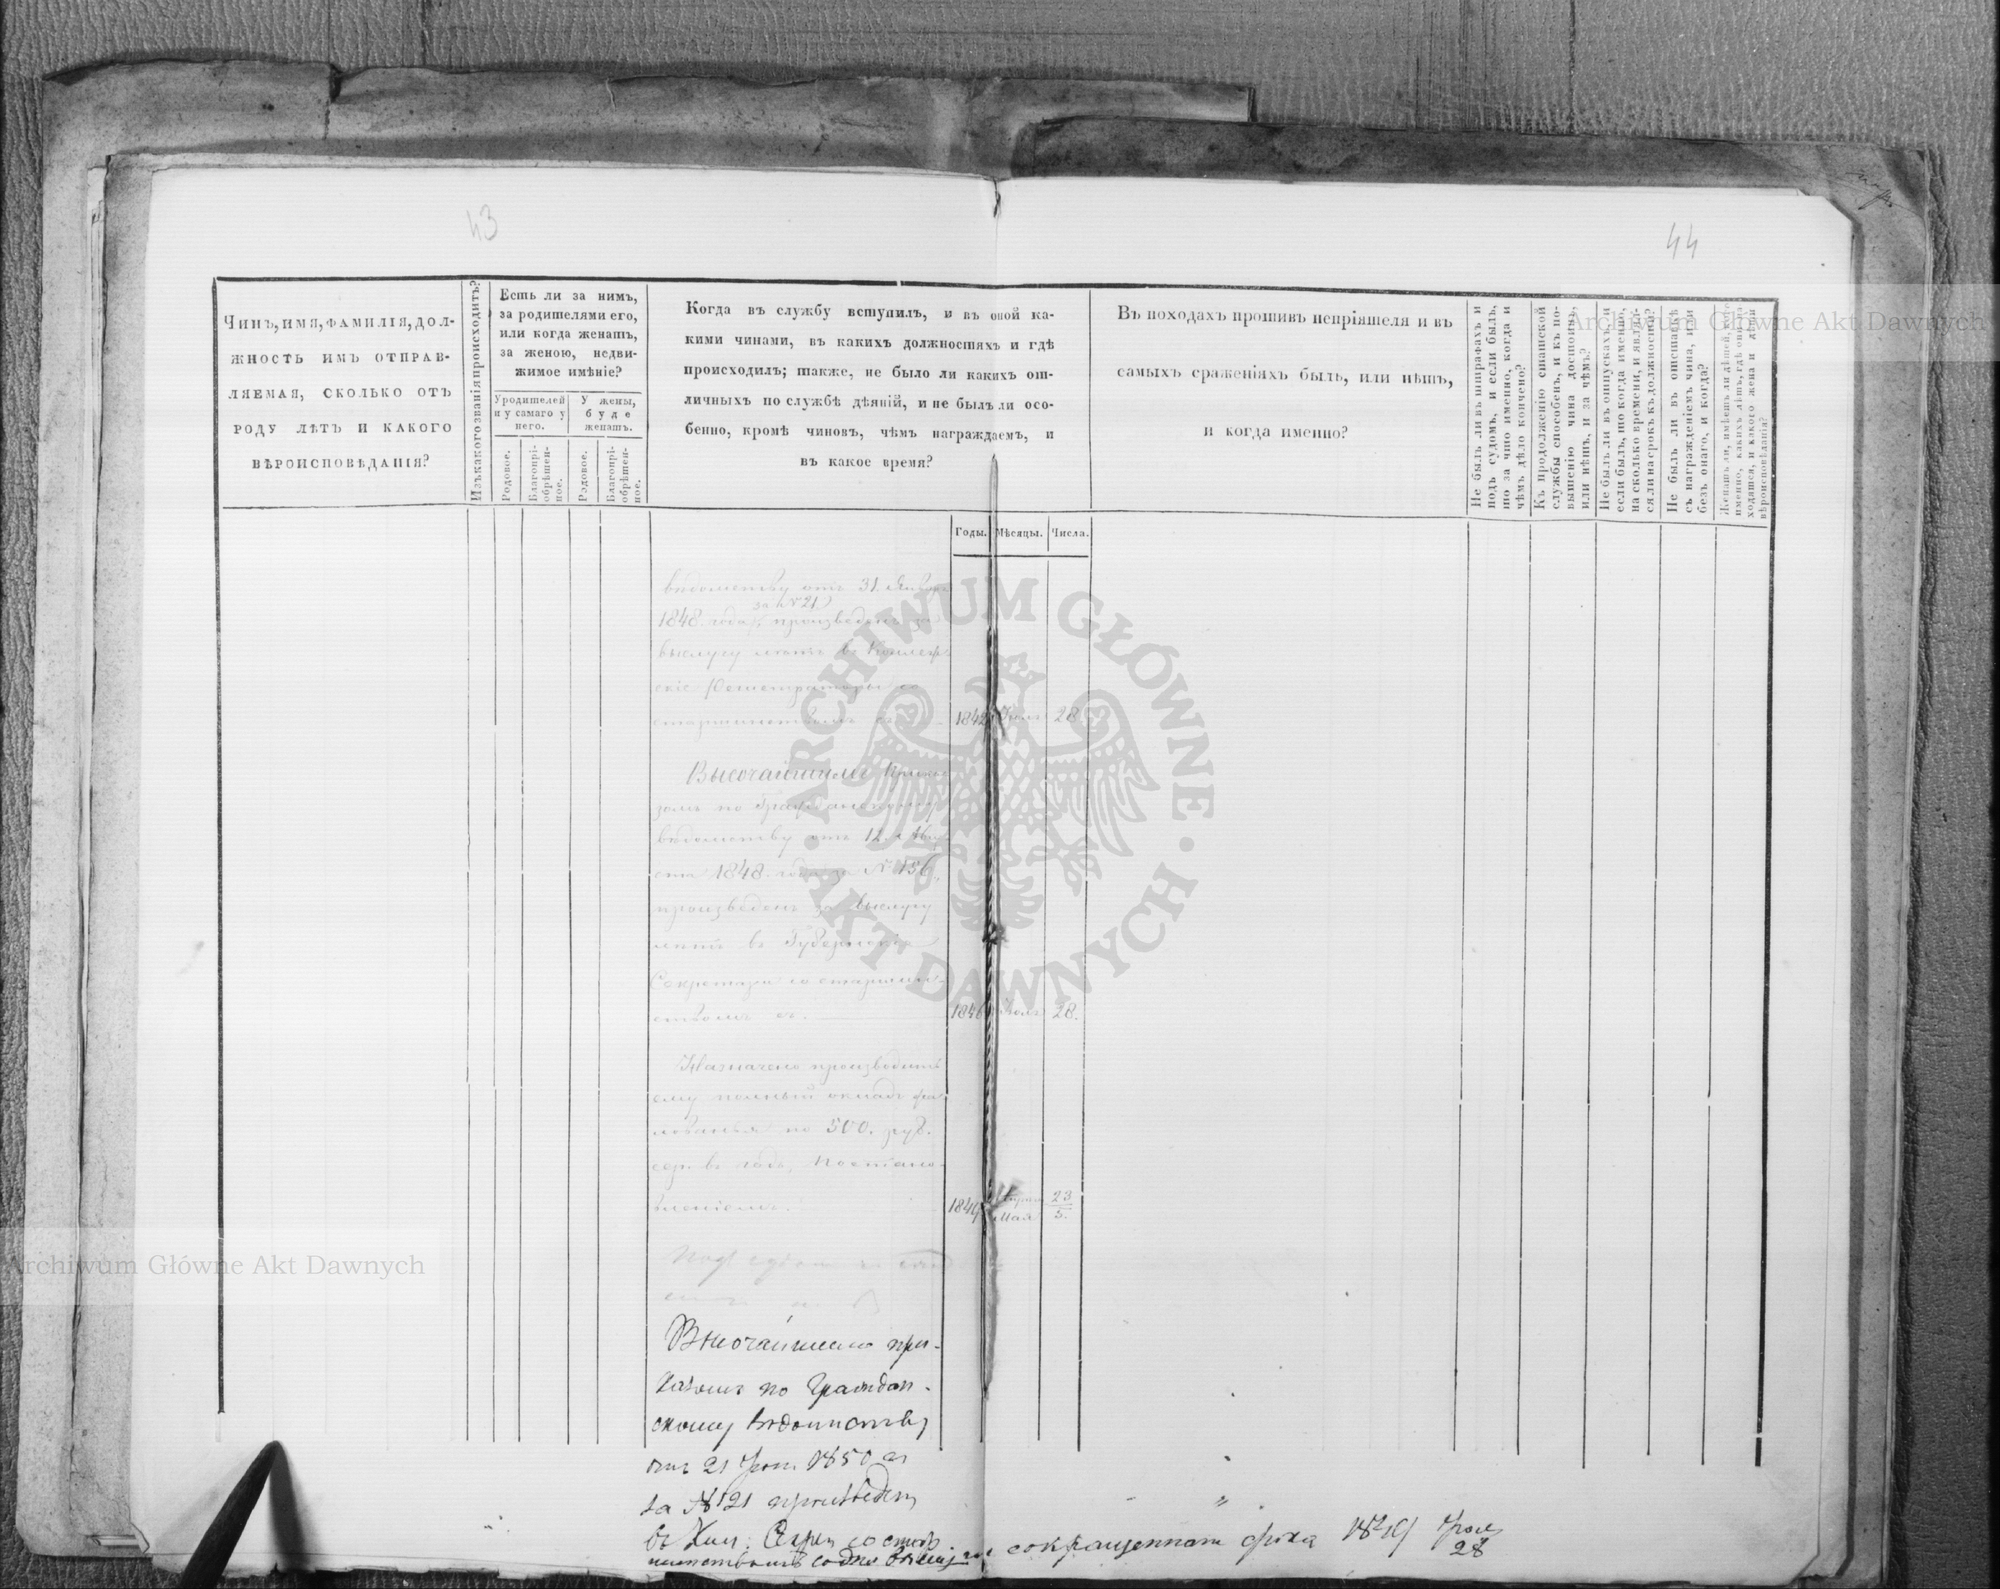 43
44
Чинъ, имя, фамилія, дол-
жность имъ отправ-
ляемая, сколько отъ
роду лѣтъ и какого
вѣроисповѣданія?
Изъ какого званія происходитъ?
Есть ли за нимъ,
за родителями его,
или когда женатъ,
за женою, недви-
жимое имѣніе?
У родителей
и у самаго у
него.
У жены,
буде
женатъ.
Родовое.
Благопрі-
обрѣтен-
ное.
Родовое.
Благопрі-
обрѣтен-
ное.
Когда въ службу вступилъ, и въ оной ка-
кими чинами, въ какихъ должностяхъ и гдѣ
происходилъ; также, не было ли какихъ от-
личныхъ по службѣ дѣяній, и не былъ ли осо-
бенно, кромѣ чиновъ, чѣмъ награждаемъ, и
въ какое время?
Годы.
Мѣсяцы.
Числа.
Въ походахъ противъ непріятеля и въ
самыхъ сраженіяхъ былъ, или нѣтъ,
и когда именно?
Не былъ ли въ штрафахъ и
подъ судомъ, и если былъ,
то за что именно, когда и
чѣмъ дѣло кончено?
Къ продолженію статской
службы способенъ, и къ по-
вышенію чина достоинъ,
или нѣтъ, и за чѣмъ?
Не былъ ли въ отпускахъ, и
если былъ, то когда именно,
на сколько времени, и являл-
ся ли на срокъ къ должности?
Не былъ ли въ отставкѣ
съ награжденіемъ чина, или
безъ онаго, и когда?
Женатъ ли, имѣетъ ли дѣтей, кого
именно, какихъ лѣтъ, гдѣ они на-
ходятся, и какого жена и дѣти
вѣроисповѣданія?
вѣдомству отъ 31 Января
за №21
1848 года, произведенъ за
выслугу лѣтъ въ Коллеж-
скіе Регистраторы со
старшинствомъ съ 1842 Іюля 28
Высочайшимъ Прика-
зомъ по Гражданскому
вѣдомству отъ 12 Авгу-
ста 1848 года за № 156
произведенъ за выслугу
лѣтъ въ Губернскіе
Секретари со старшин-
ствомъ съ. 1846 Іюля 28.
Назначено производить
ему полный окладъ жа-
лованья по 500. руб.
сер. въ годъ, Постано-
вленіемъ. 1849 Апрѣля 23
Мая 5.
Высочайшимъ при-
казомъ по Граждан-
скому Вѣдомству
отъ 21 1850 г.
за № 121 произведенъ
въ Кол: Секрет со стар
шинствомъ со дня выслуги сокращеннаго срока 1849 Іюля
28
ARCHIWUM GŁÓWNE · AKT DAWNYCH ·
Archiwum Główne Akt Dawnych
Archiwum Główne Akt Dawnych